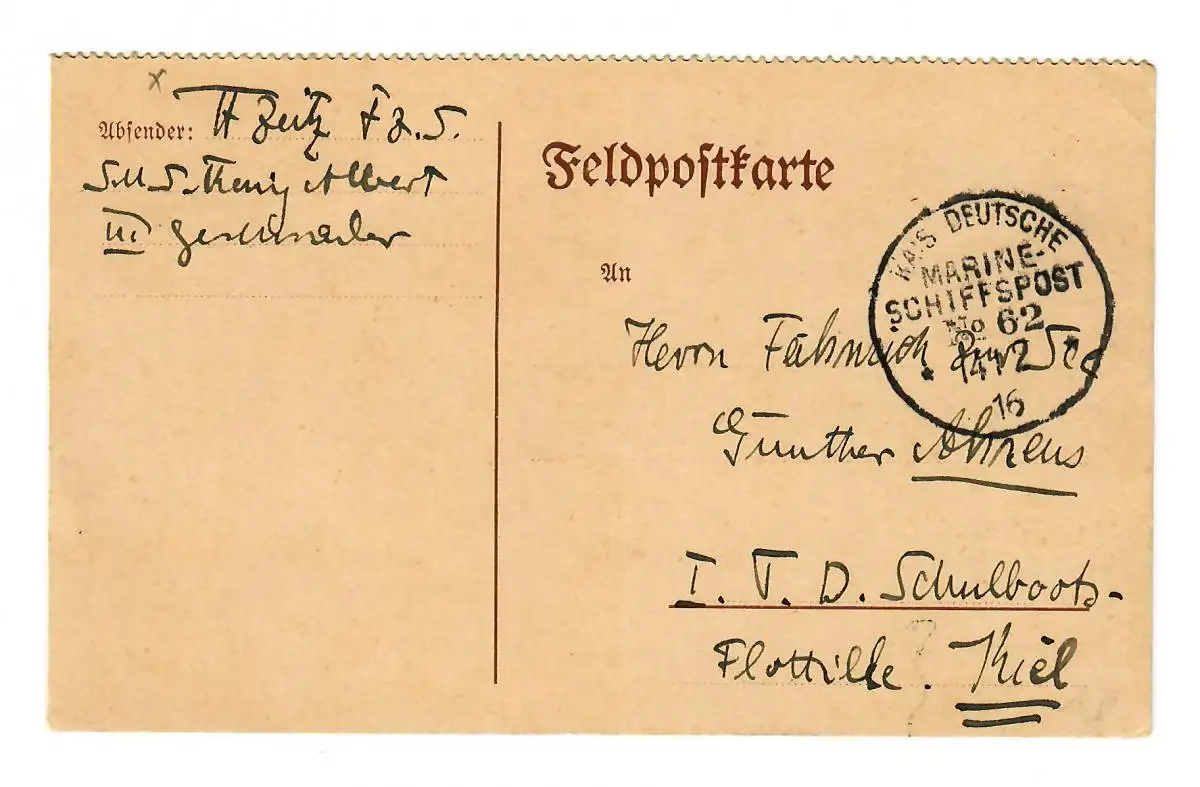 Absender: H Zeitz F. z. S.
S.M.S. König Albert
III Geschwader
Feldpostkarte
KAIS. DEUTSCHE
MARINE-
SCHIFFSPOST
No 62
* 14 12 *
16
An
Herrn Fähnrich zur See
Günther Ahrens
I. T. D. Schulboots-
Flottille. Kiel